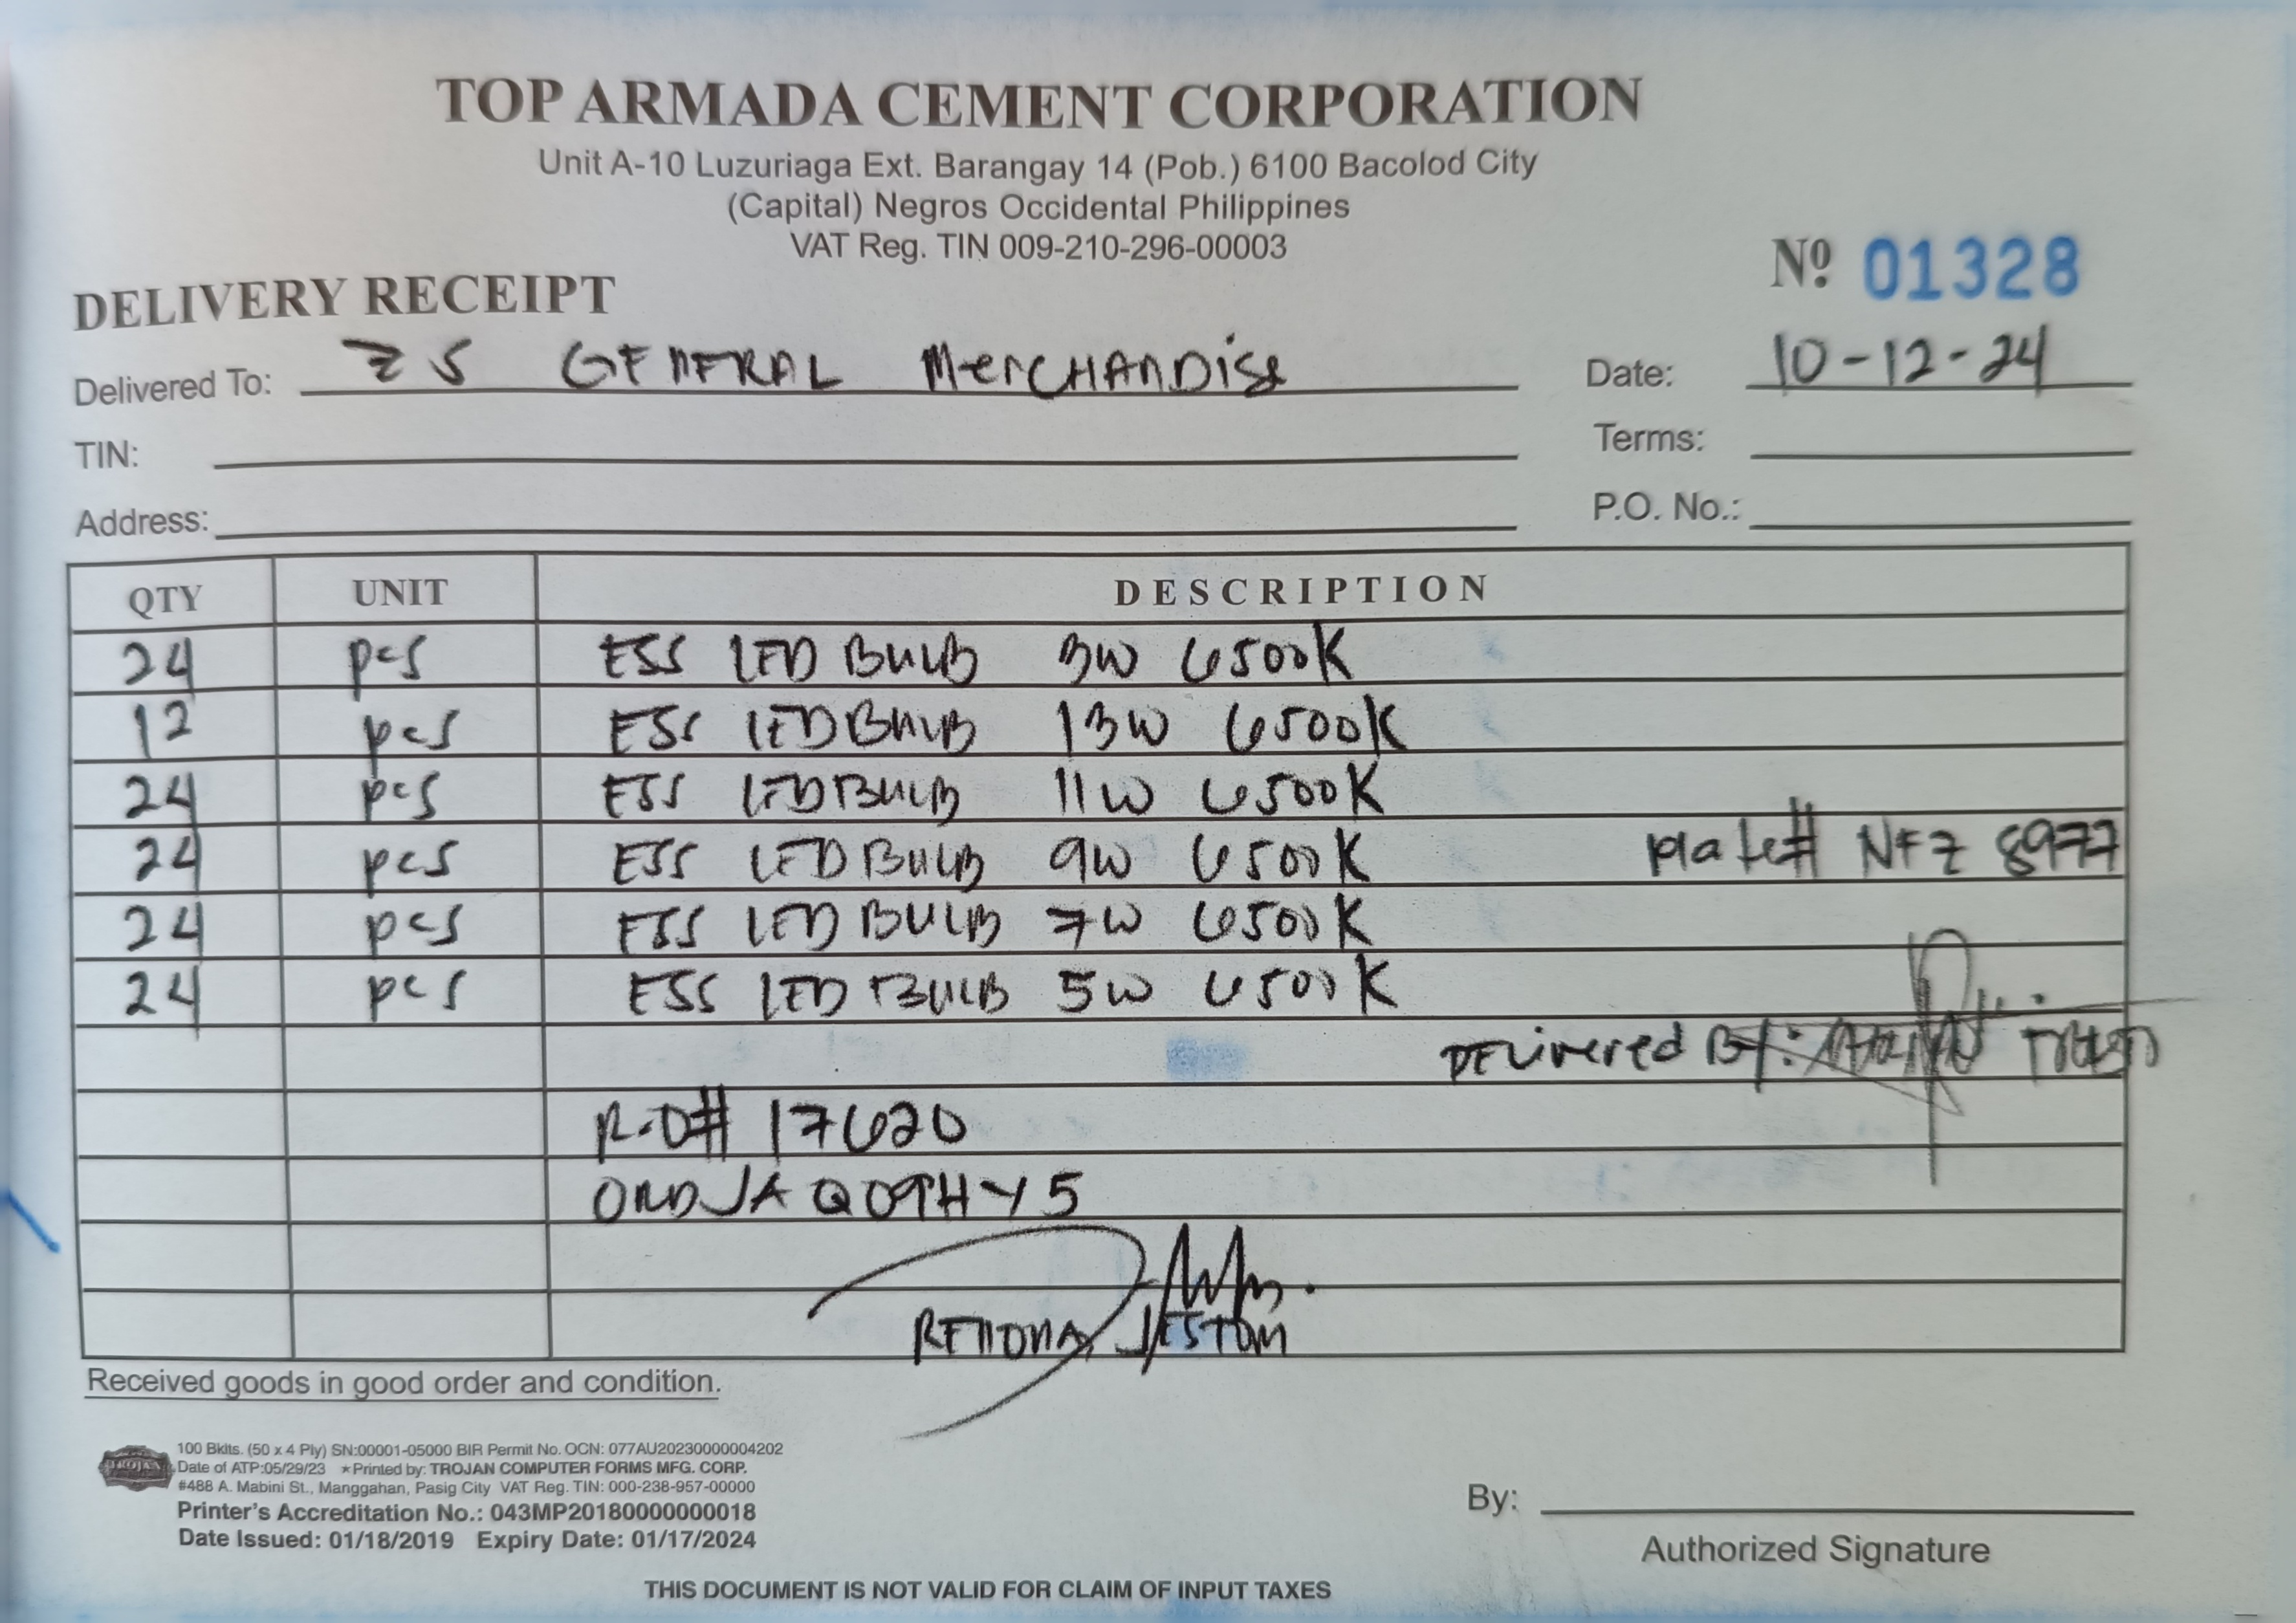 TOP ARMADA CEMENT CORPORATION
Unit A-10 Luzuriaga Ext. Barangay 14 (Pob.) 6100 Bacolod City
(Capital) Negros Occidental Philippines
VAT Reg. TIN 009-210-296-00003
Nº 01328
DELIVERY RECEIPT
Delivered To: ZS GENERAL MerCHANDise Date: 10-12-24
TIN: Terms:
Address: P.O. No.:
QTY UNIT DESCRIPTION
24 pcs ESS LED BULB 3W 6500K
12 pcs ESS LED BULB 13W 6500K
24 pcs ESS LED BULB 11W 6500K
24 pcs ESS LED BULB 9W 6500K plate# NFZ 8977
24 pcs ESS LED BULB 7W 6500K
24 pcs ESS LED BULB 5W 6500K
DELivered By:
R.O# 17620
ORDJAQ09HY5
JESTOM
Received goods in good order and condition.
TROJAN
100 Bklts. (50 x 4 Ply) SN:00001-05000 BIR Permit No. OCN: 077AU20230000004202
Date of ATP:05/29/23 ★Printed by: TROJAN COMPUTER FORMS MFG. CORP.
#488 A. Mabini St., Manggahan, Pasig City VAT Reg. TIN: 000-238-957-00000
Printer's Accreditation No.: 043MP20180000000018
Date Issued: 01/18/2019 Expiry Date: 01/17/2024
By:
Authorized Signature
THIS DOCUMENT IS NOT VALID FOR CLAIM OF INPUT TAXES